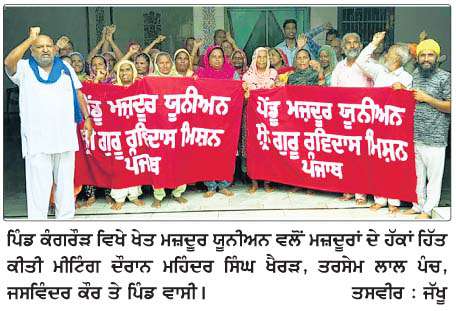 ਪੇਂਡੂ ਮਜ਼ਦੂਰ ਯੂਨੀਅਨ
ਸ਼੍ਰੀ ਗੁਰੂ ਰਵਿਦਾਸ ਮਿਸ਼ਨ
ਪੰਜਾਬ
ਪੇਂਡੂ ਮਜ਼ਦੂਰ ਯੂਨੀਅਨ
ਸ਼੍ਰੀ ਗੁਰੂ ਰਵਿਦਾਸ ਮਿਸ਼ਨ
ਪੰਜਾਬ
ਪਿੰਡ ਕੰਗਰੌੜ ਵਿਖੇ ਖੇਤ ਮਜ਼ਦੂਰ ਯੂਨੀਅਨ ਵਲੋਂ ਮਜ਼ਦੂਰਾਂ ਦੇ ਹੱਕਾਂ ਹਿੱਤ
ਕੀਤੀ ਮੀਟਿੰਗ ਦੌਰਾਨ ਮਹਿੰਦਰ ਸਿੰਘ ਖੈਰੜ, ਤਰਸੇਮ ਲਾਲ ਪੰਚ,
ਜਸਵਿੰਦਰ ਕੌਰ ਤੇ ਪਿੰਡ ਵਾਸੀ। ਤਸਵੀਰ : ਜੱਖੂ